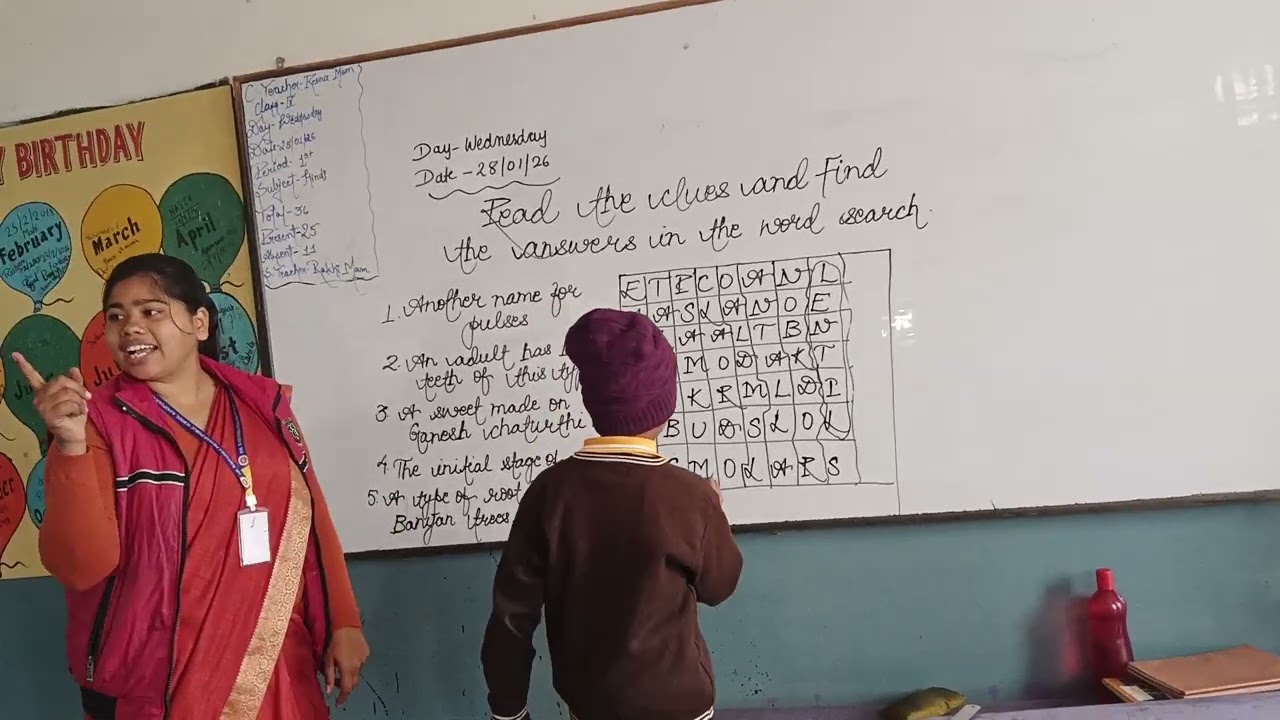 Y BIRTHDAY
25/2/2018
February
March
April
C. Teacher-Reena Mam
Class-II
Day-Wednesday
Date-28/01/26
Period-1st
Subject-Hindi
Total-36
Present-25
Absent-11
S. Teacher-Rakhi Mam
Day-Wednesday
Date-28/01/26
Read the clues and Find
the answers in the word search.
1. Another name for
pulses
2. An adult has
teeth of this
3. A sweet made on
Ganesh chaturthi
4. The initial stage of
5. A type of root
Banyan trees
E T E C O A N L
A S L A N O E
A A L T B N
M O D A K T
K R M L D I
B U D S L O L
M O L A R S